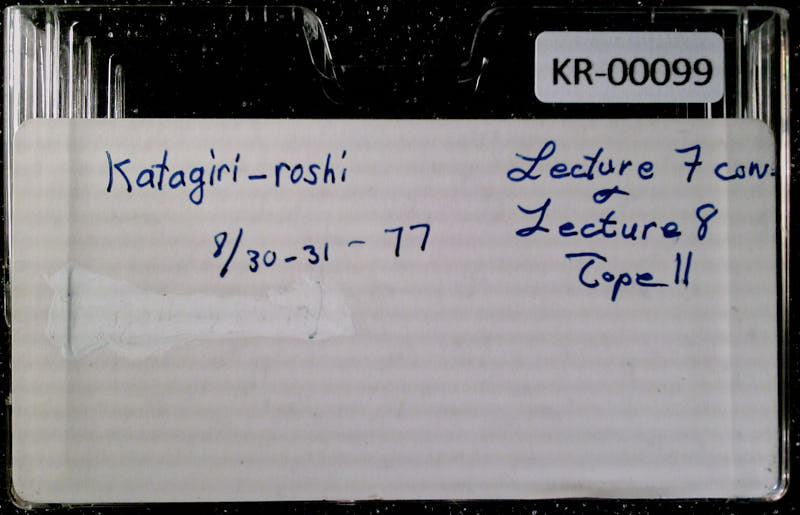 KR-00099
Katagiri-roshi
8/30-31-77
Lecture 7 con.
&
Lecture 8
Tape 11